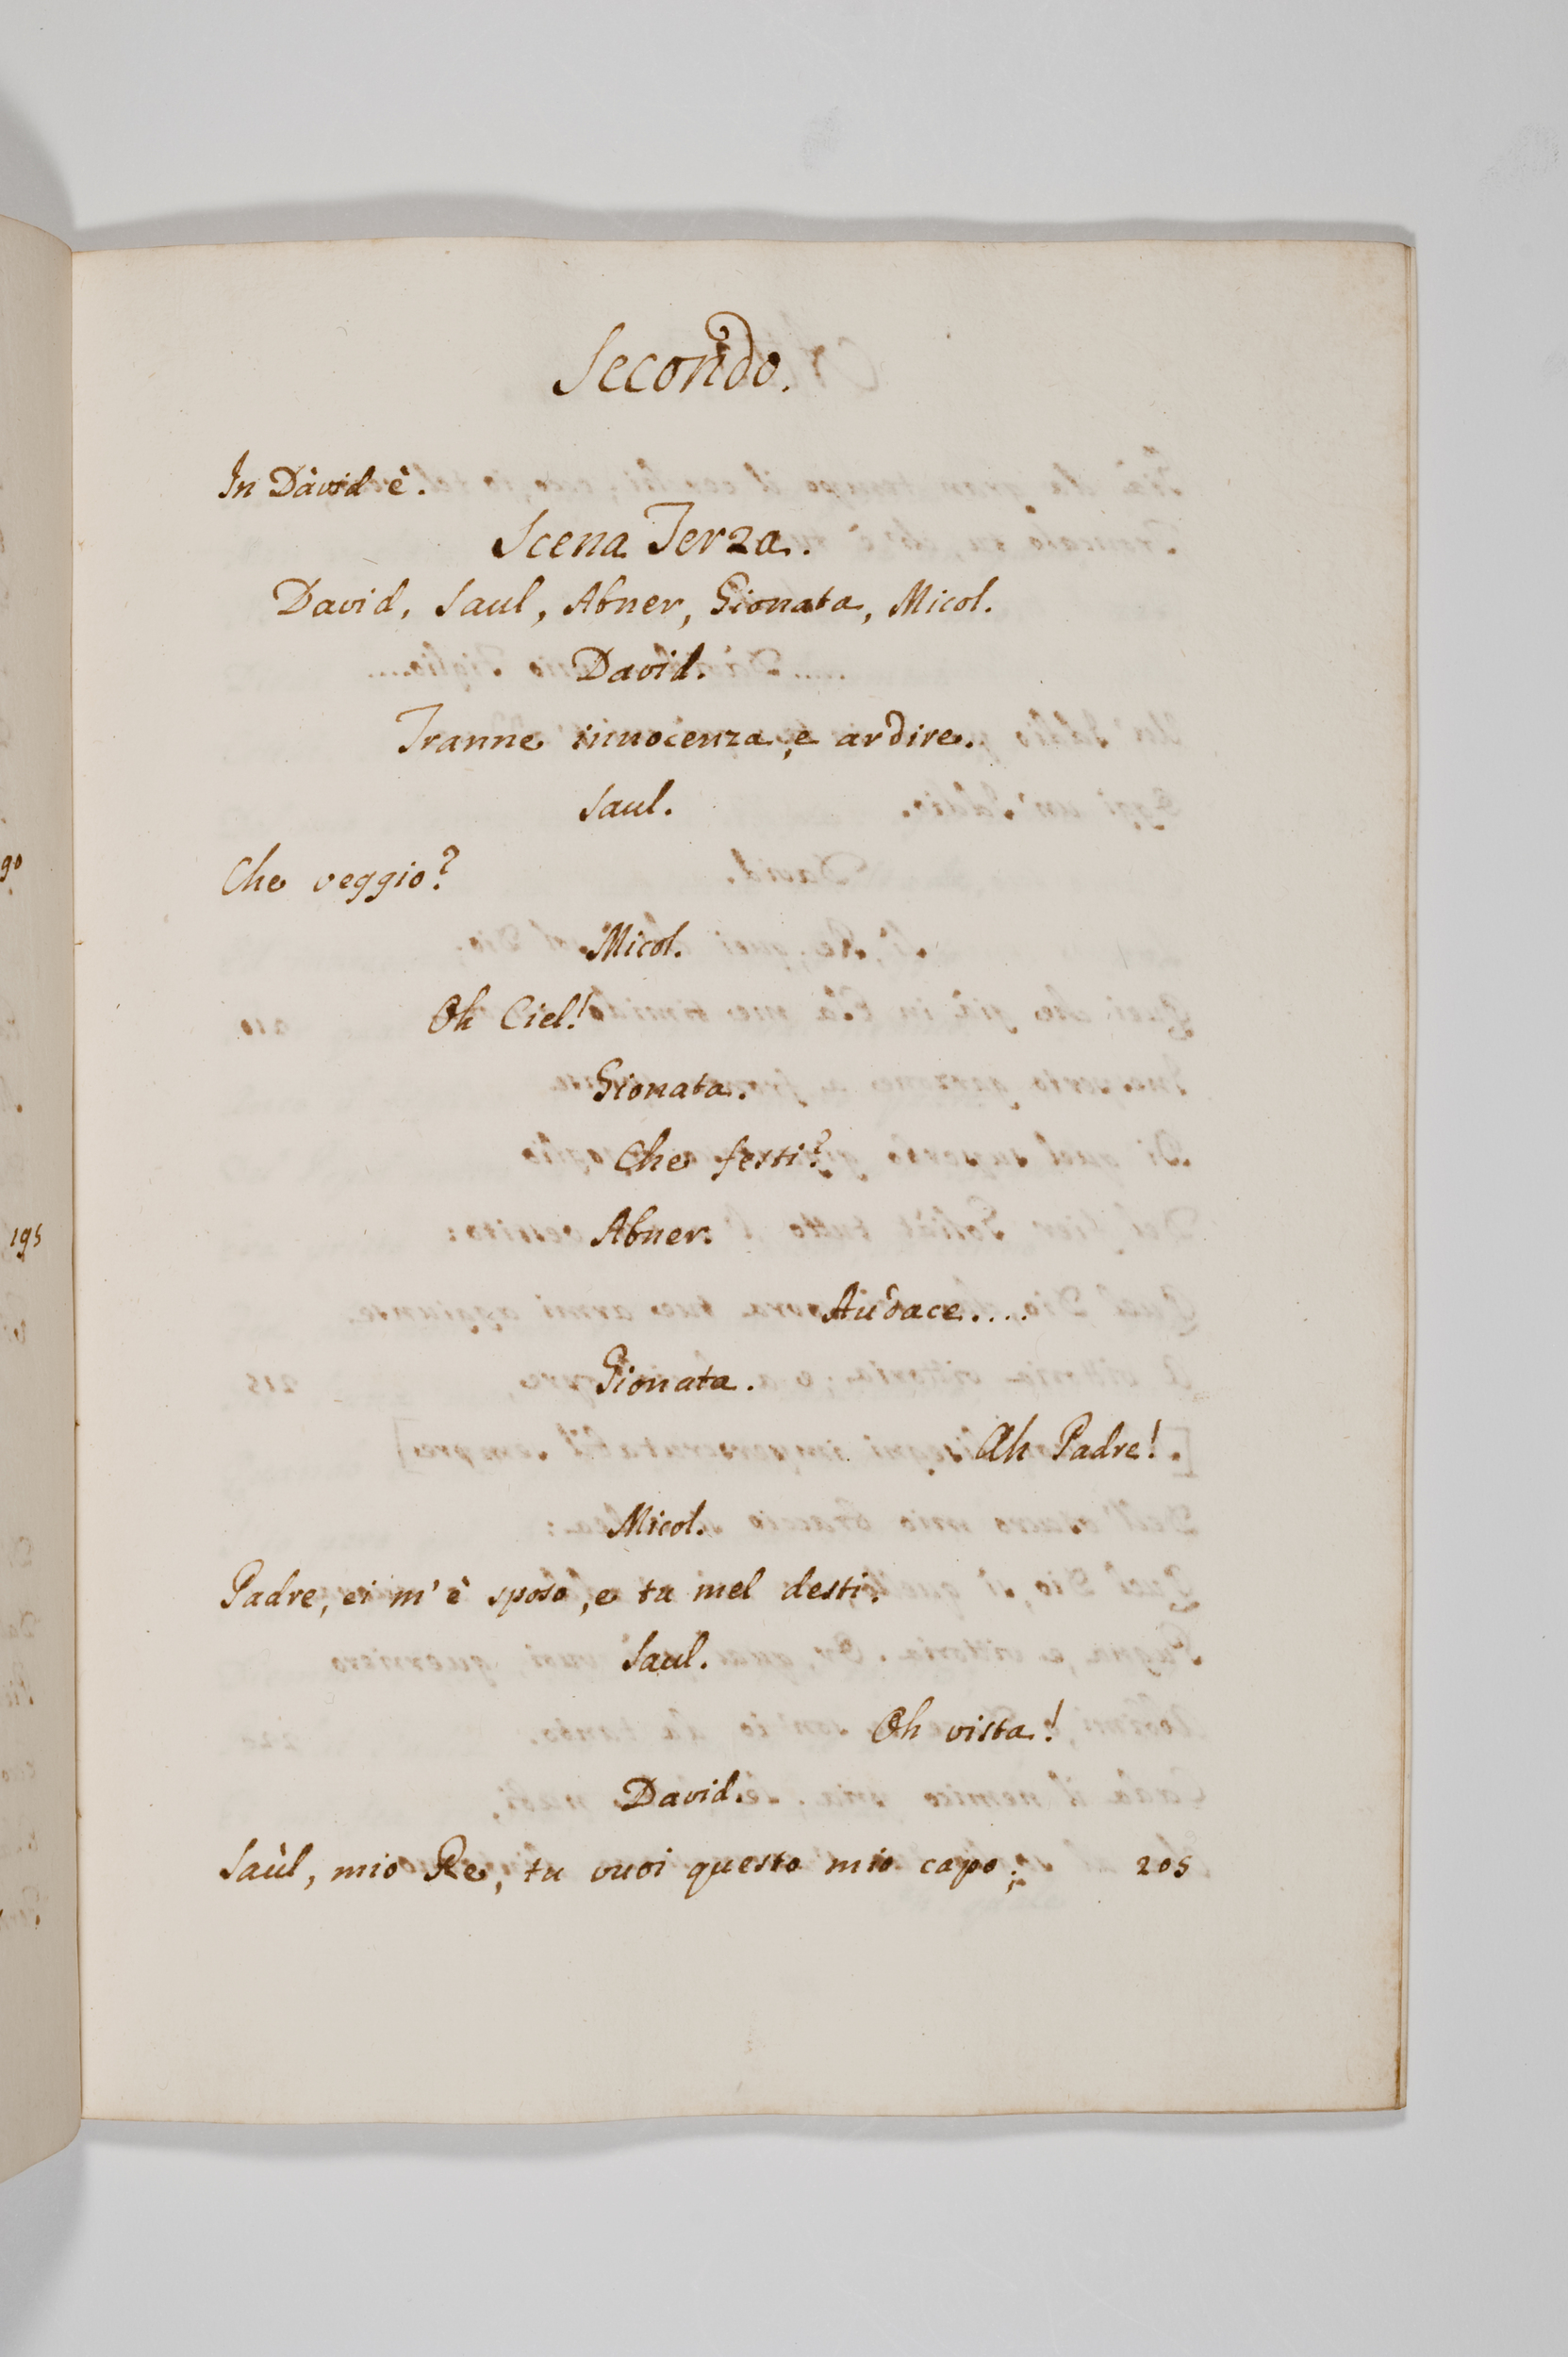 Secondo.
In Dàvid è.
Scena Terza.
David, Saul, Abner, Gionata, Micol.
David.
Tranne innocenza, e ardire.
Saul.
Che veggio?
Micol.
Oh Ciel!
Gionata.
Che festi?
Abner.
Audace....
Gionata.
Ah Padre!
Micol.
Padre, ei m'è sposo, e tu mel desti.
Saul.
Oh vista!
David.
Saùl, mio Re, tu vuoi questo mio capo; 205
195